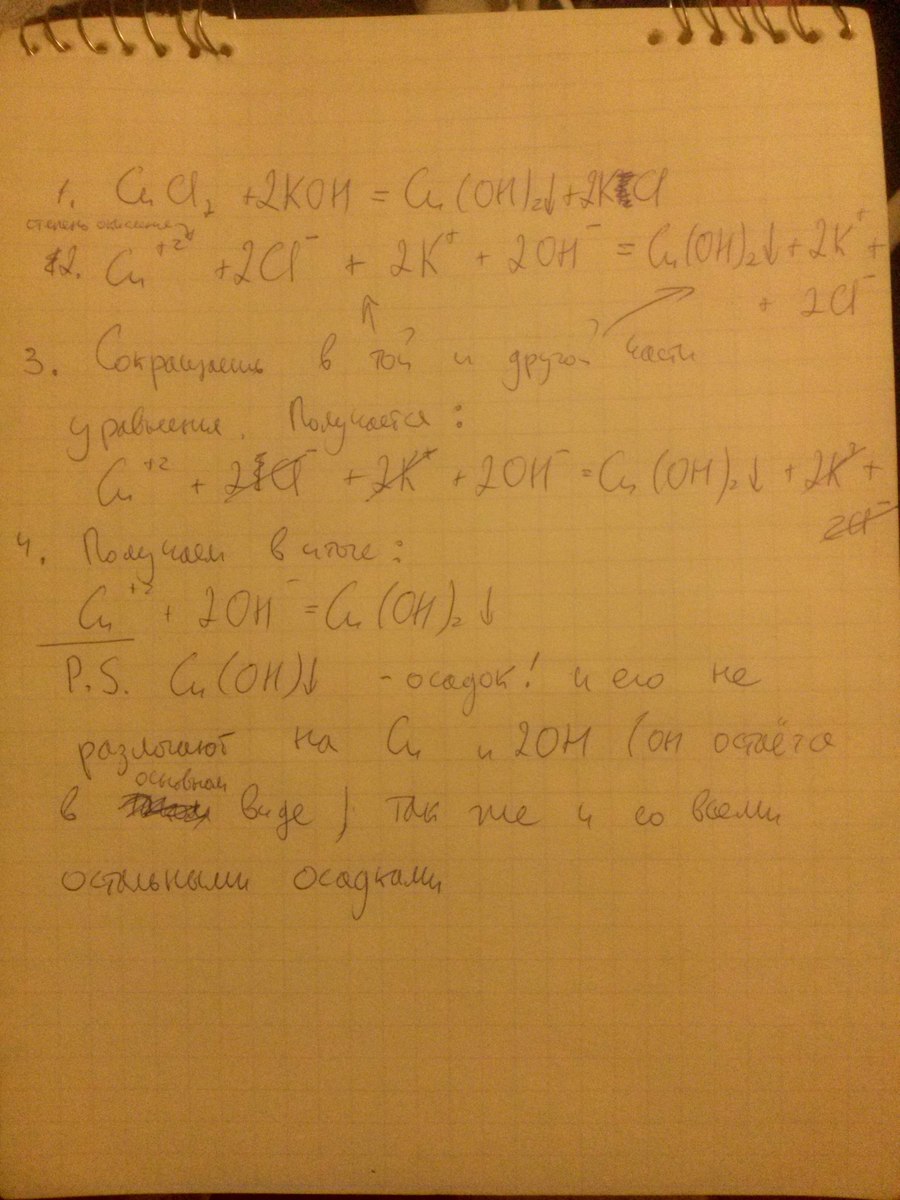 1. CuCl₂ + 2KOH = Cu(OH)₂↓ + 2KCl
степень окисления
2. Cu⁺² + 2Cl⁻ + 2K⁺ + 2OH⁻ = Cu(OH)₂↓ + 2K⁺ +
+ 2Cl⁻
3. Сокращаешь в той и другой части
уравнения. Получается:
Cu⁺² + 2Cl⁻ + 2K⁺ + 2OH⁻ = Cu(OH)₂↓ + 2K⁺ +
2Cl⁻
4. Получаем в итоге:
Cu⁺² + 2OH⁻ = Cu(OH)₂↓
P.S. Cu(OH)↓ - осадок! и его не
разлагают на Cu и 2OH (он остаётся
в основном виде) так же и со всеми
остальными осадками